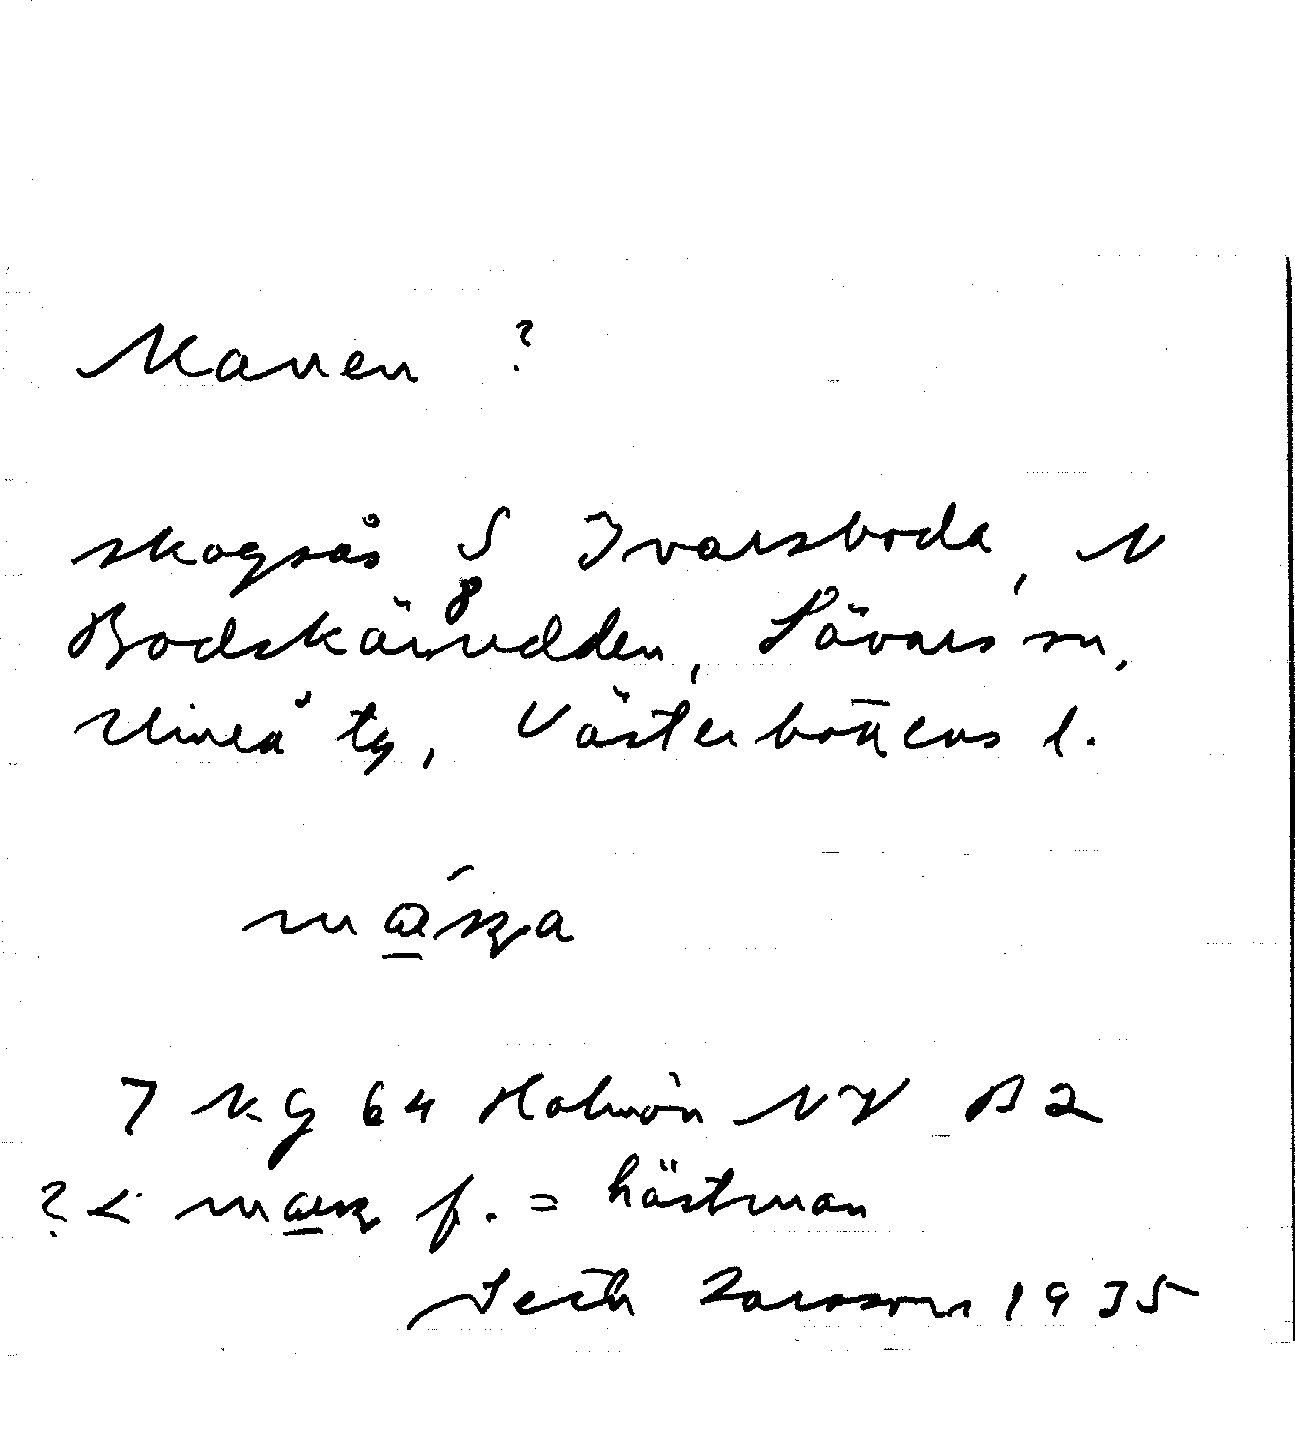 Manen ?
skogsås S Ivarsboda, N
Bodskärsudden, Sävars sn,
Umeå tg, Västerbottens l.
7 KG 64 Holmön NV B2
? < f. = hästman
Larsson 1935